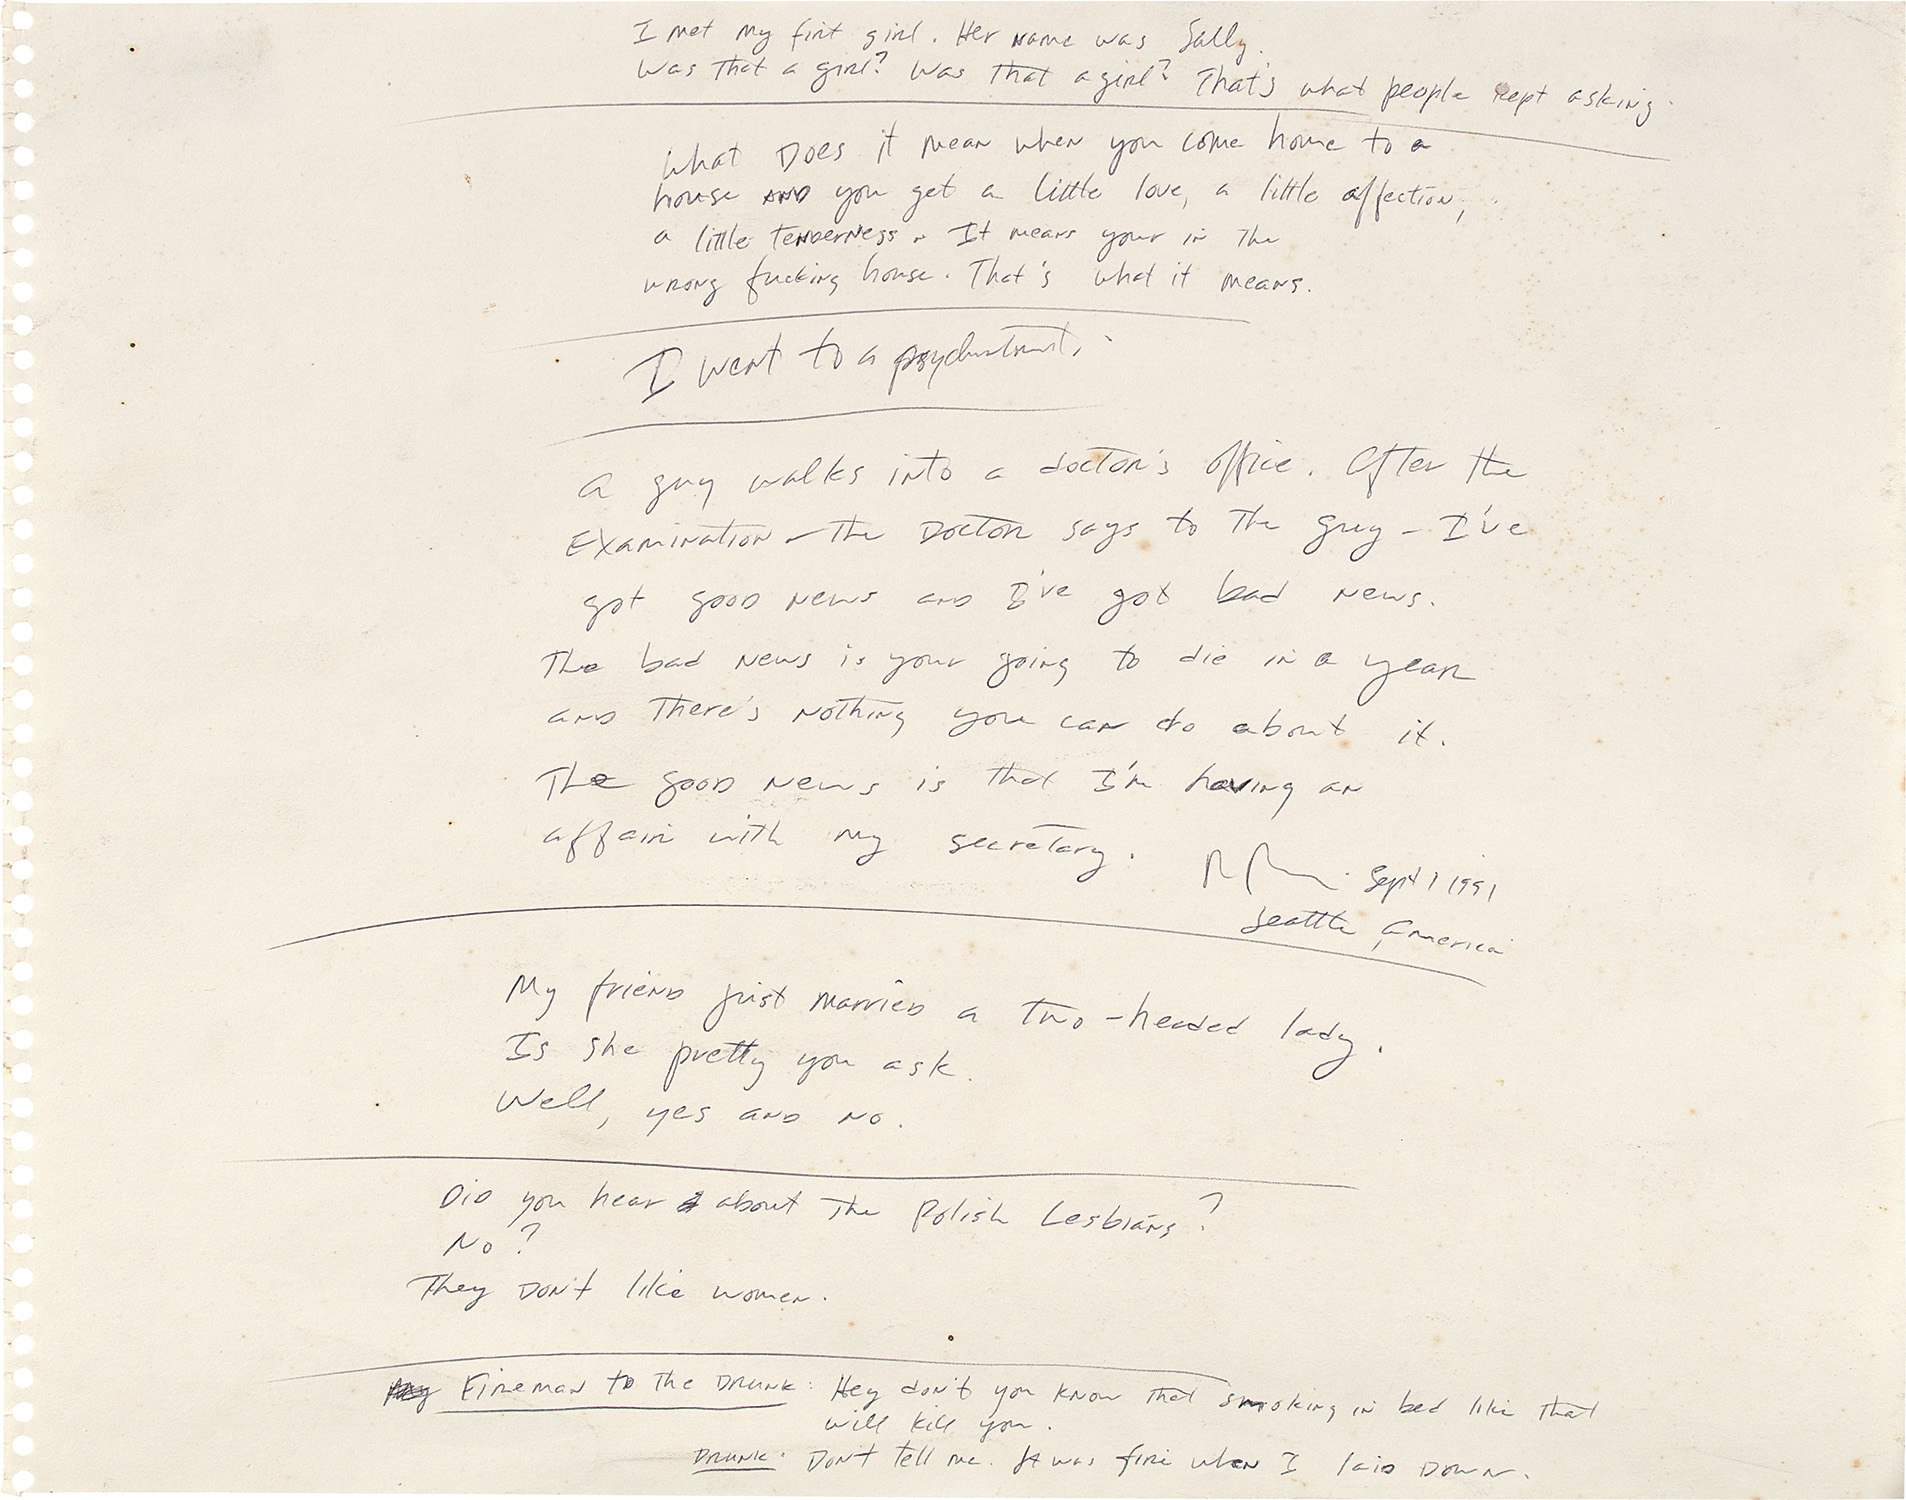 I met my first girl. Her name was Sally.
Was that a girl? Was that a girl? That's what people kept asking.
What Does it mean when you come home to a
house AND you get a little love, a little affection,
a little tenderness. It means your in the
wrong fucking house. That's what it means.
I went to a psychiatrist.
A guy walks into a doctor's office. After the
Examination - The Doctor says to the guy - I've
got good news and I've got bad news.
The bad news is your going to die in a year
and there's nothing you can do about it.
The good news is that I'm having an
affair with my secretary.
Sept 1991
Seattle, America
My friend just married a two-headed lady.
Is she pretty you ask.
Well, yes and no.
Did you hear about the Polish Lesbians?
No?
They Don't like women.
Fireman to the Drunk: Hey don't you know that smoking in bed like that
will kill you.
Drunk: Don't tell me. It was fire when I laid Down.